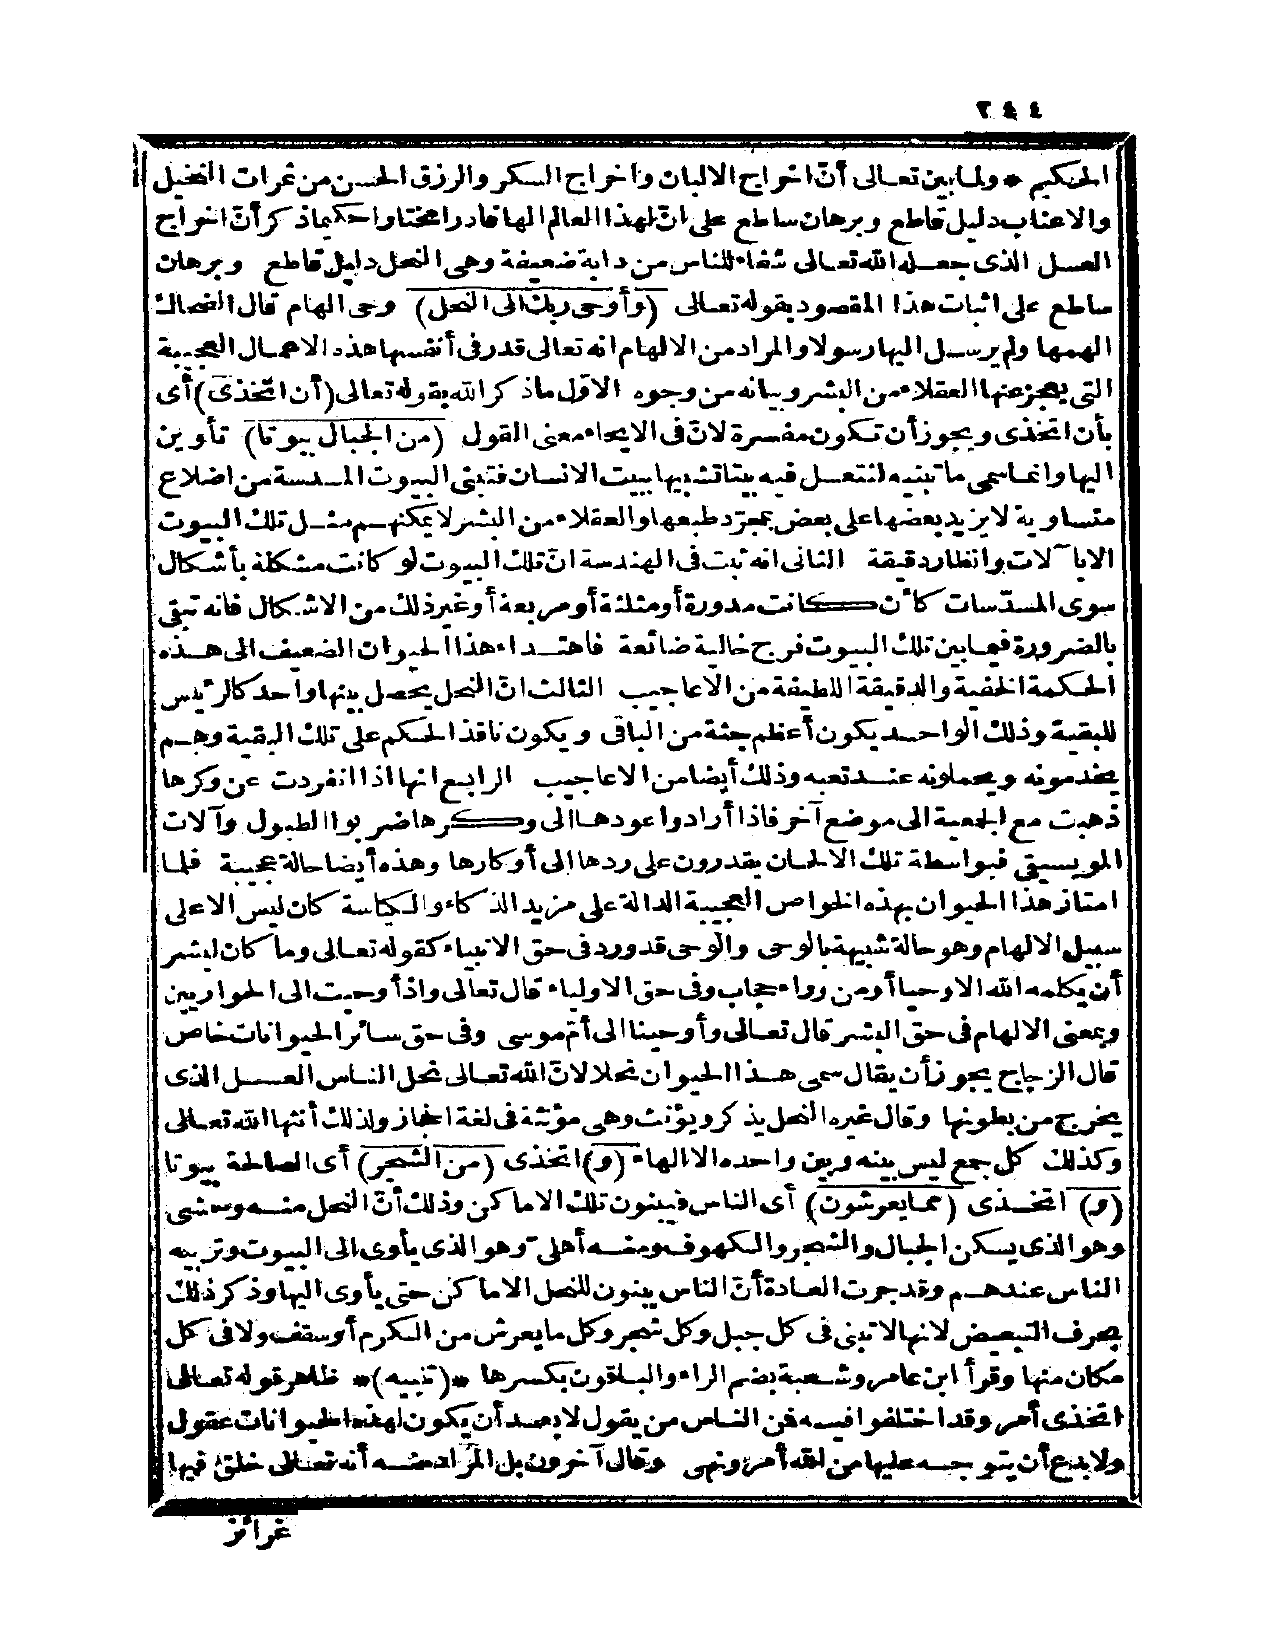 ٢٤٤
الحكيم * ولما بين تعالى أنّ اخراج الالبان واخراج السكر والرزق الحسن من ثمرات النخيل
والاعناب دليل قاطع وبرهان ساطع على انّ لهذا العالم الها قادرا مختاوا حكيما ذكر أنّ اخراج
العسل الذى جعله الله تعالى شفاء للناس من دابة ضعيفة وهى النحل دليل قاطع وبرهان
ساطع على اثبات هذا المقصود بقوله تعالى (وأوحى ربك الى النحل) وحى الهام قال الضحاك
الهمها ولم يرسل اليها رسولا والمراد من الالهام انه تعالى قدر فى أنفسها هذه الاعمال العجيبة
التى يعجز عنها العقلاء من البشر وبيانه من وجوه الاوّل ماذكر الله بقوله تعالى (أن اتخذى) أى
بأن اتخذى ويجوز أن تكون مفسرة لانّ فى الايحاء معنى القول (من الجبال بيوتا) تأوين
اليها وانما سمى ما تبنيه لتتعسل فيه بيتا تشبيها ببيت الانسان فتبنى البيوت المسدسة من اضلاع
متساوية لا يزيد بعضها على بعض بمجرّد طبعها والعقلاء من البشر لا يمكنهم مثل تلك البيوت
الا بآلات وانظار دقيقة الثانى انه ثبت فى الهندسة انّ تلك البيوت لو كانت مشكلة بأشكال
سوى المسدّسات كأن كانت مدورة أو مثلثة أو مربعة أو غير ذلك من الاشكال فانه تبقى
بالضرورة فيما بين تلك البيوت فرج خالية ضائعة فاهتداء هذا الحيوان الضعيف الى هذه
الحكمة الخفية والدقيقة اللطيفة من الاعاجيب الثالث انّ النحل يحصل بينها واحد كالرئيس
للبقية وذلك الواحد يكون أعظم جثة من الباقى ويكون نافذ الحكم على تلك البقية وهم
يخدمونه ويحملونه عند تعبه وذلك أيضا من الاعاجيب الرابع انها اذا انفردت عن وكرها
ذهبت مع الجمعية الى موضع آخر فاذا أرادوا عودها الى وكرها ضربوا الطبول وآلات
المويسيقى فبواسطة تلك الالحان يقدرون على ردها الى أوكارها وهذه أيضا حالة عجيبة فلما
امتاز هذا الحيوان بهذه الخواص العجيبة الدالة على مزيد الذكاء والكياسة كان ليس الا على
سبيل الالهام وهو حالة شبيهة بالوحى والوحى قد ورد فى حق الانبياء كقوله تعالى وما كان لبشر
أن يكلمه الله الا وحيا أو من وراء حجاب وفى حق الاولياء قال تعالى واذ أوحيت الى الحواريين
وبمعنى الالهام فى حق البشر قال تعالى وأوحينا الى أمّ موسى وفى حق سائر الحيوانات خاص
قال الزجاج يجوز أن يقال سمى هذا الحيوان نحلا لانّ الله تعالى نحل الناس العسل الذى
يخرج من بطونها وقال غيره النحل يذكر ويؤنث وهى مؤنثة فى لغة الحجاز ولذلك أنثها الله تعالى
وكذلك كل جمع ليس بينه وبين واحده الا الهاء (و) اتخذى (من الشجر) أى الصالحة بيوتا
(و) اتخذى (مما يعرشون) أى الناس فيبنون تلك الاماكن وذلك أنّ النحل منه وحشى
وهو الذى يسكن الجبال والشجر والكهوف ومنه أهلىّ وهو الذى يأوى الى البيوت وتربيه
الناس عندهم وقد جرت العادة أنّ الناس يبنون للنحل الاماكن حتى يأوى اليها وذكر ذلك
بحرف التبعيض لانها لا تبنى فى كل جبل وكل شجر وكل ما يعرش من الكرم أو سقف ولا فى كل
مكان منها وقرأ ابن عامر وشعبة بضم الراء والباقون بكسرها *(تنبيه)* ظاهر قوله تعالى
اتخذى أمر وقد اختلفوا فيه فمن الناس من يقول لا يبعد أن يكون لهذه الحيوانات عقول
ولا بدع أن يتوجه عليها من الله أمر ونهى وقال آخرون بل المراد منه أنه تعالى خلق فيها
غرائز